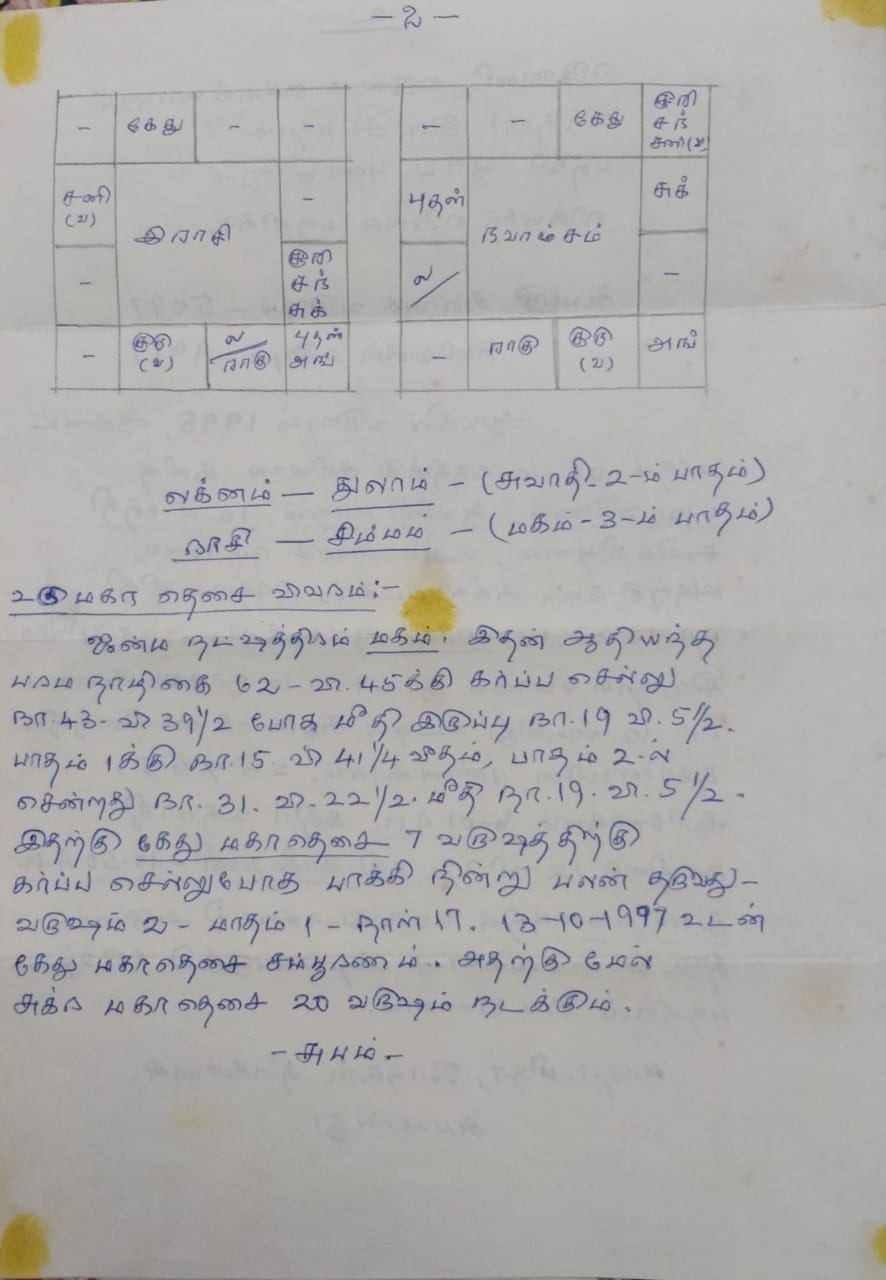 - 2 -
- கேது - - - - கேது சூரி சந் சனி(வ)
சனி (வ) - புதன் சுக்
இராசி நவாம்சம்
- சூரி சந் சுக் ல/ -
- குரு (வ) ல/ராகு புதன் அங் - ராகு குரு (வ) அங்
லக்னம் - துலாம் - (சுவாதி-2-ம் பாதம்)
ராசி - சிம்மம் - (மகம்-3-ம் பாதம்)
உடுமகா தெசை விவரம்:-
ஜன்ம நட்ஷத்திரம் மகம். இதன் ஆதியந்த
பரம நாழிகை 62-வி.45க்கி கர்ப்ப செல்லு
நா.43-வி 39½ போக மீதி இருப்பு நா.19 வி.5½.
பாதம் 1க்கு நா.15 வி 41¼ வீதம், பாதம் 2-ல்
சென்றது நா.31.வி.22½.மீதி நா.19.வி.5½.
இதற்கு கேது மகாதெசை 7 வருஷத்திற்கு
கர்ப்ப செல்லுபோக பாக்கி நின்று பலன் தருவது-
வருஷம் 2- மாதம் 1 - நாள் 17. 13-10-1997 உடன்
கேது மகாதெசை சம்பூரணம். அதற்கு மேல்
சுக்ர மகாதெசை 20 வருஷம் நடக்கும்.
- சுபம் -